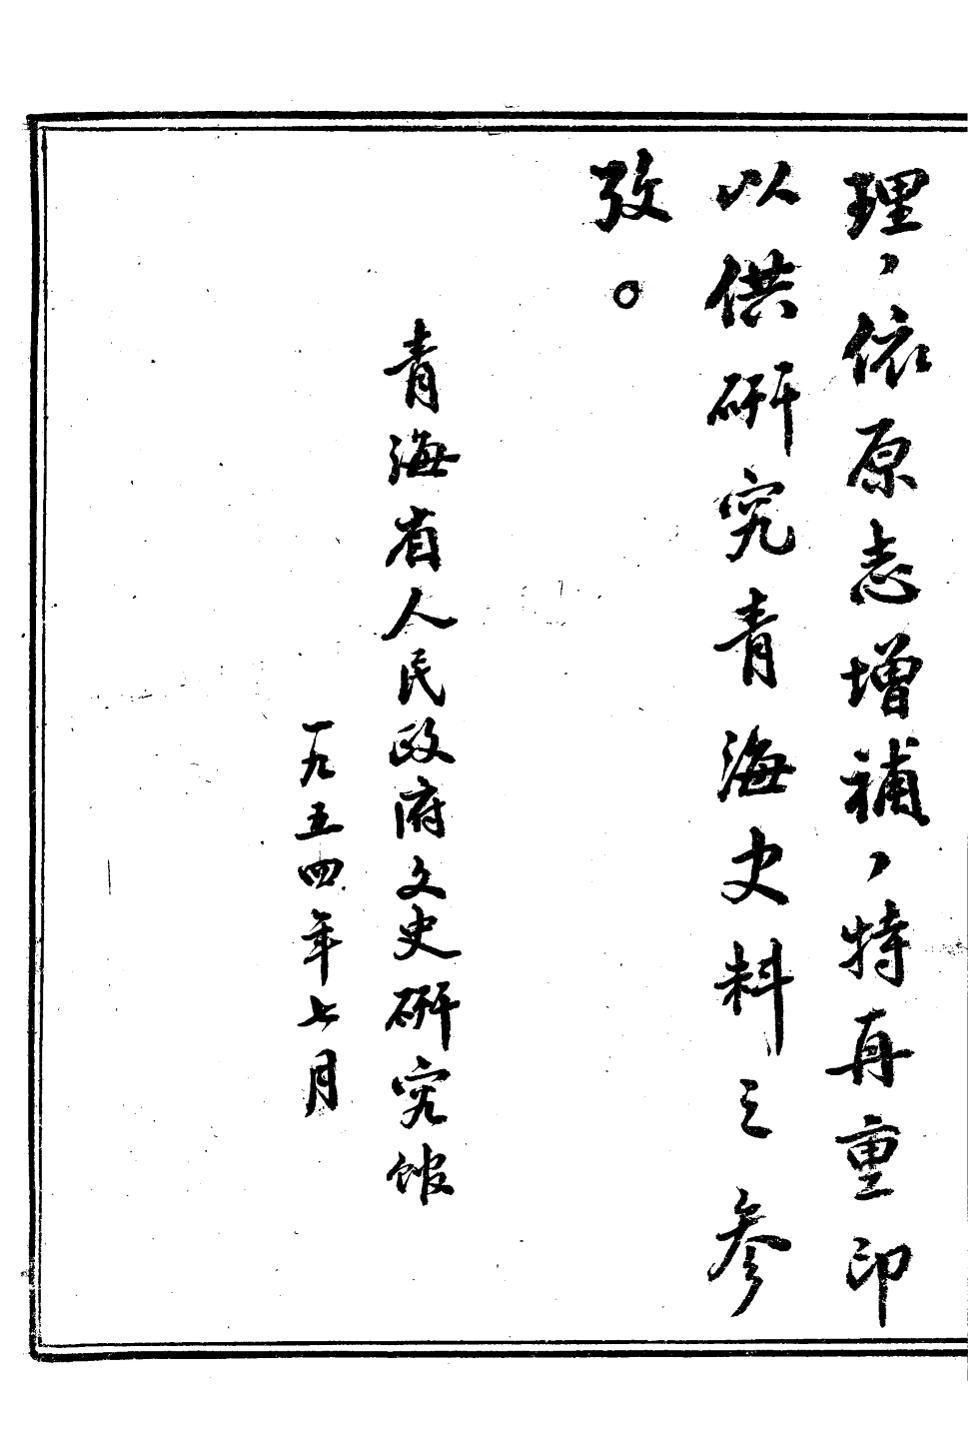 理，依原志增補，特再重印
以供研究青海史料之参
攷。
青海省人民政府文史研究馆
一九五四年七月